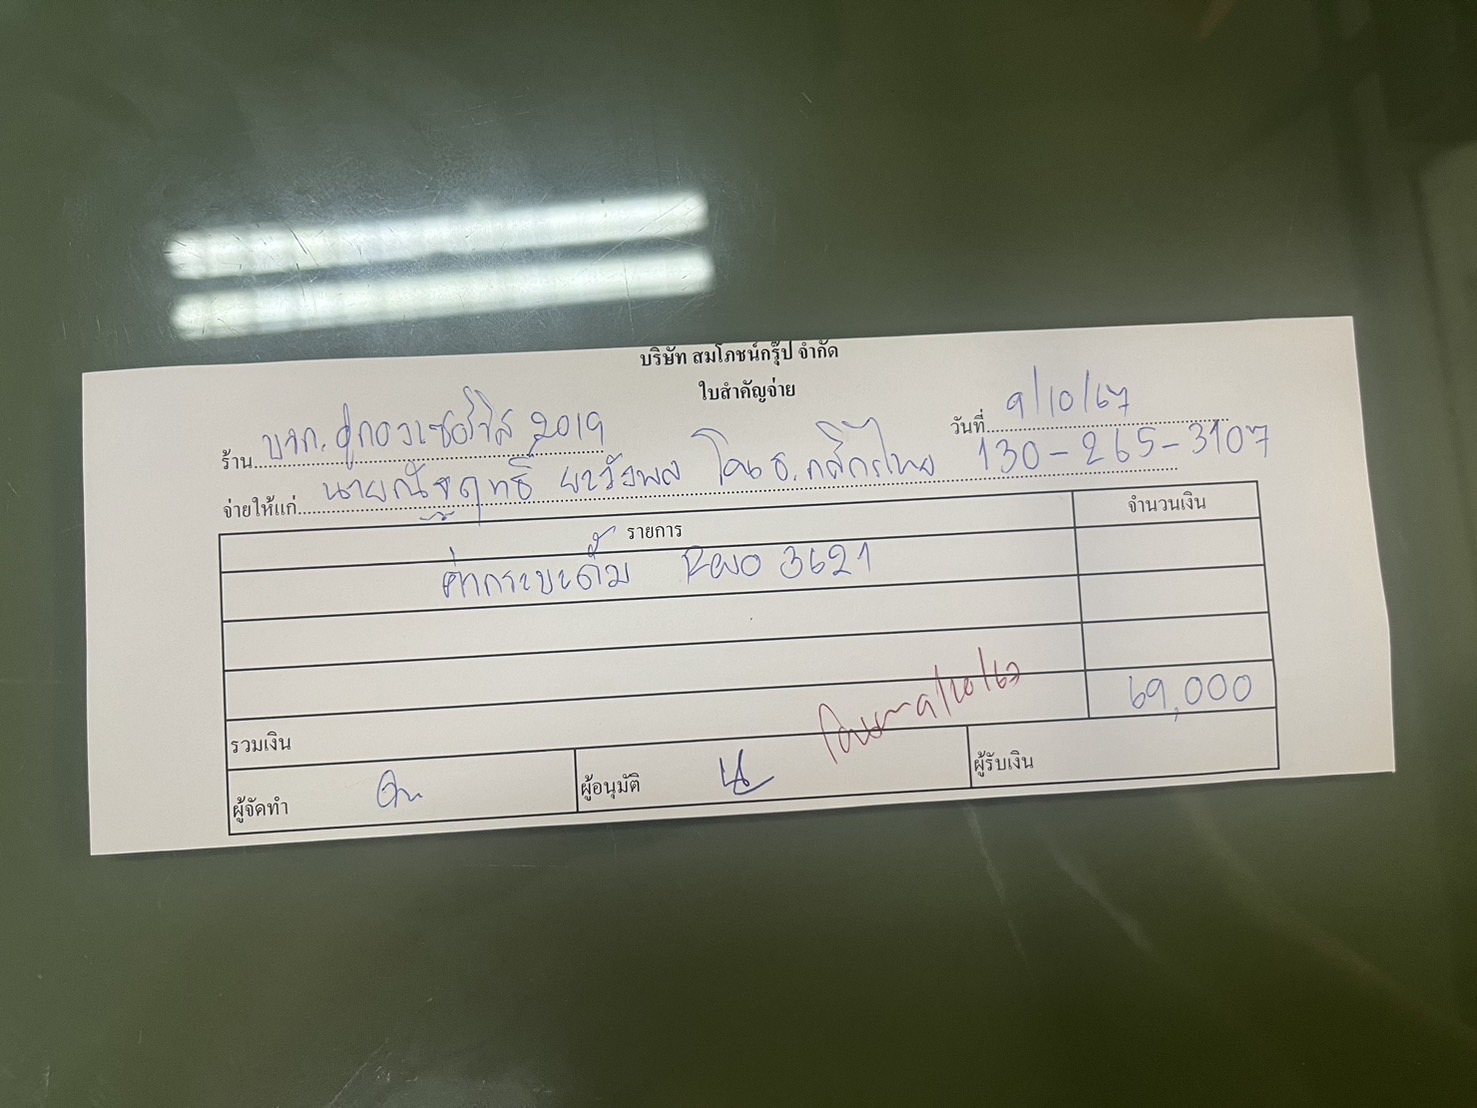 บริษัท สมโภชน์กรุ๊ป จำกัด
ใบสำคัญจ่าย
ร้าน บจก. อู่ทองเซอร์วิส 2019 วันที่ 9/10/67
จ่ายให้แก่ นายณัฐฤทธิ์ โอน ธ.กสิกรไทย 130-265-3107
รายการ จำนวนเงิน
ค่ากระบะดั้ม Revo 3621
รวมเงิน 69,000
โอนแล้ว 9/10/67
ผู้จัดทำ ผู้อนุมัติ ผู้รับเงิน